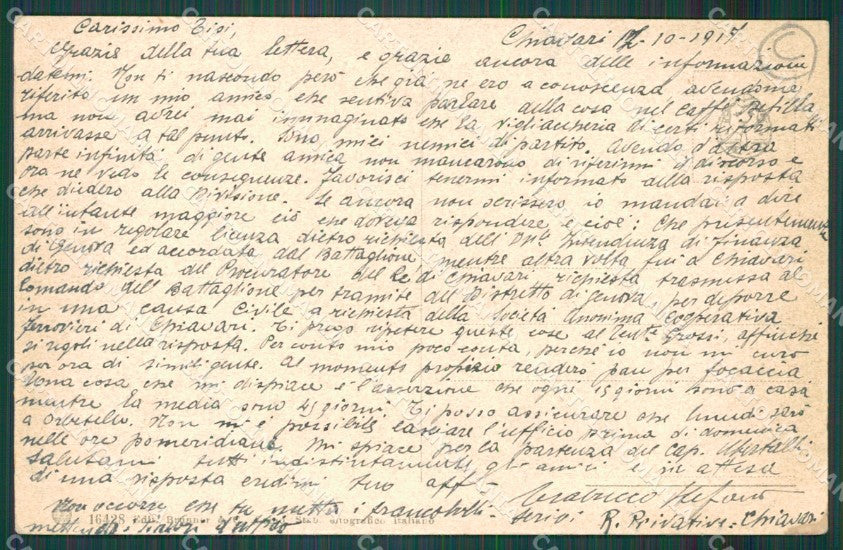 Carissimo Gigi, Chiavari 12-10-1917
Grazie della tua lettera, e grazie ancora delle informazioni
datemi. Non ti nascondo però che già ne ero a conoscenza avendome
riferito un mio amico che sentiva parlare della cosa nel caffè
ma non avrei mai immaginato che la vigliaccheria di certi riformati
arrivasse a tal punto. Sono miei nemici di partito. Avendo d'altra
parte infinità di gente amica non mancarono di riferirmi il discorso e
ora ne vedo le conseguenze. Favorisci tenermi informato della risposta
che diedero alla Divisione. Se ancora non scrissero io mandai a dire
all'aiutante maggiore ciò che doveva rispondere e cioè: che presentemente
sono in regolare licenza dietro richiesta dell' On. Intendenza di Finanza
di Genova ed accordata dal Battaglione, mentre altra volta fui a Chiavari
dietro richiesta del Procuratore del Re di Chiavari, richiesta trasmessa al
Comando del Battaglione per tramite del Distretto di Genova, per deporre
in una causa Civile a richiesta della Società Anonima Cooperativa
ferrovieri di Chiavari. Ti prego ripetere queste cose al Ten. Grossi, affinchè
si regoli nella risposta. Per conto mio poco conta, perchè io non mi curo
per ora di simil gente. Al momento propizio renderò pan per focaccia
Una cosa che mi dispiace è l'asserzione che ogni 15 giorni sono a casa
mentre la media sono 45 giorni. Ti posso assicurare che lunedì sarò
a Orbetello. Non mi è possibile lasciare l'ufficio prima di domenica
nelle ore pomeridiane. Mi spiace per la partenza del Cap.
Salutami tutti indistintamente gli amici e in attesa
di una risposta credimi tuo aff. Stefano
Non occorre che tu metta i francobolli. scrivi R. Privative - Chiavari
16428 Ediz. Brunner & C. Stab. autografico italiano
d'ufficio